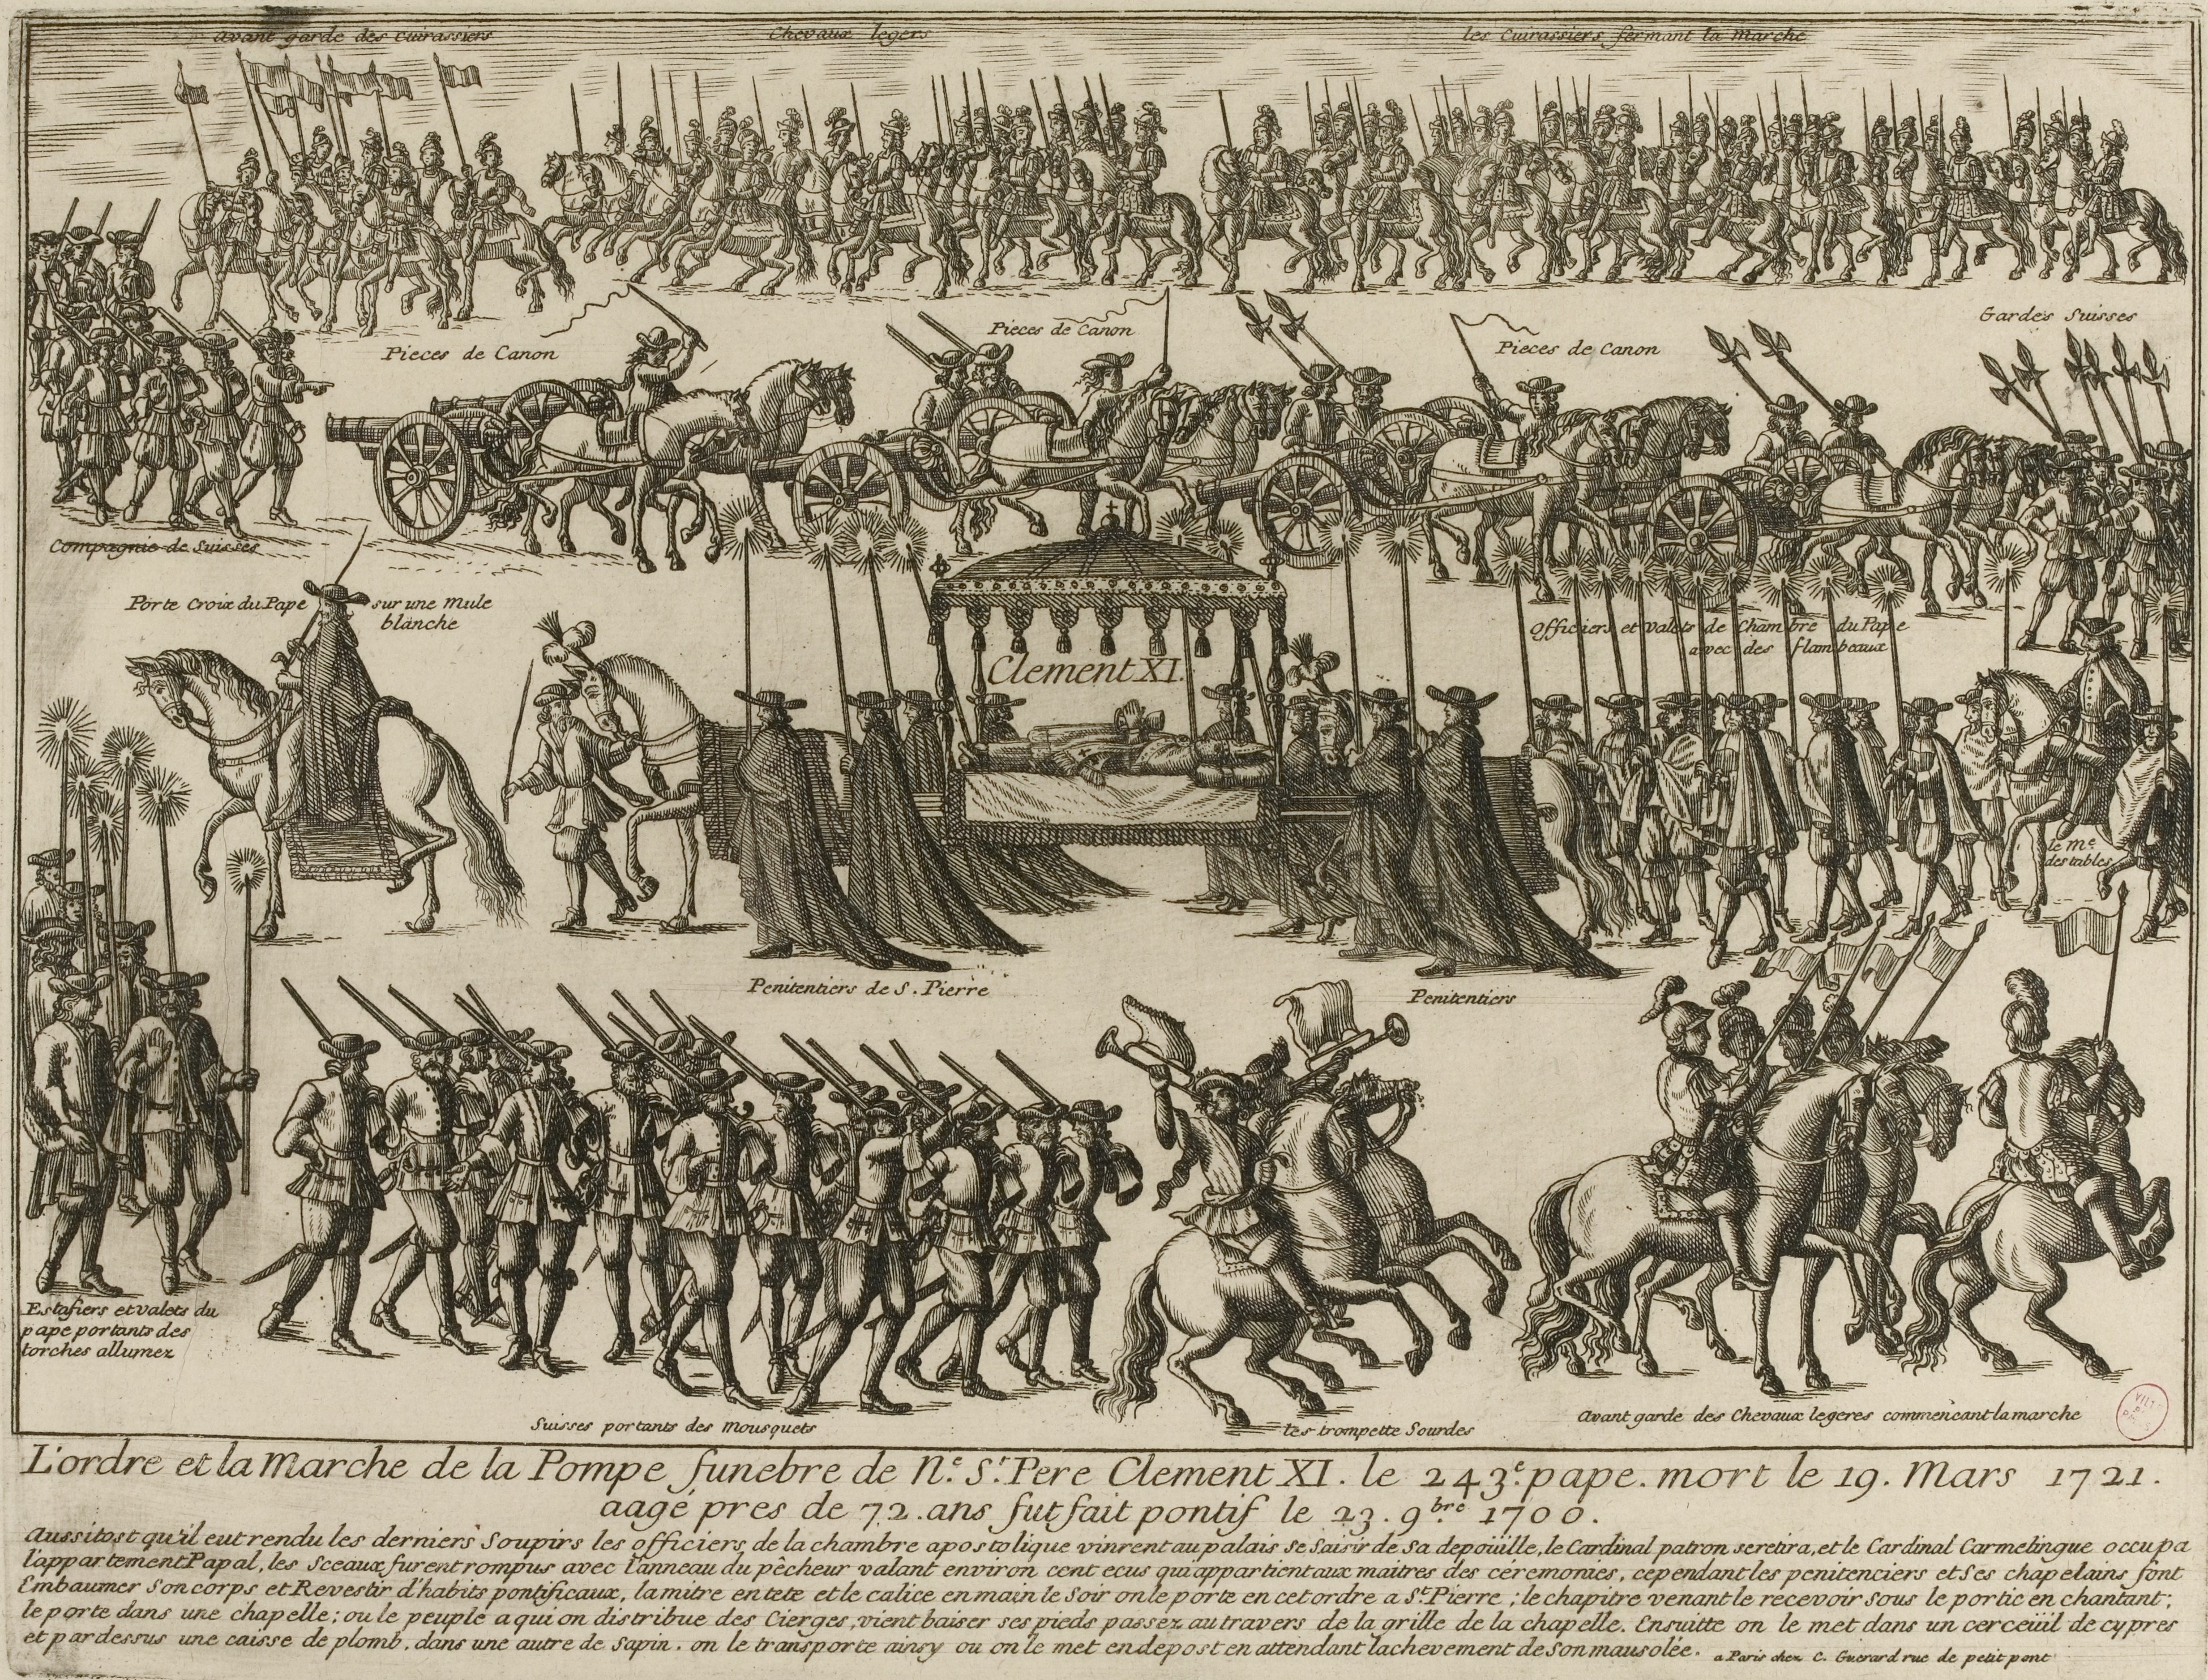 Avant garde des Cuirassiers
Chevaux legers
les Cuirassiers fermant la marche
Pieces de Canon
Pieces de Canon
Pieces de Canon
Gardes Suisses
Compagnie de Suisses
Porte Croix du Pape sur une mule
blanche
Officiers et valets de Chambre du Pape
avec des flambeaux
Clement XI.
le Me
des tables
Penitentiers de S. Pierre
Penitentiers
Estafiers et valets du
pape portants des
torches allumez
Suisses portants des Mousquets
les trompette Sourdes
Avant garde des Chevaux legeres commencant la marche
L'ordre et la Marche de la Pompe funebre de N.e S.r Pere Clement XI. le 243e. pape. mort le 19. Mars 1721.
aagé pres de 72. ans fut fait pontif le 23. 9bre 1700.
Aussitost qu'il eut rendu les derniers Soupirs les officiers de la chambre apostolique vinrent au palais se Saisir de Sa depoüille, le Cardinal patron se retira, et le Cardinal Carmelingue occupa
l'appartement Papal, les Sceaux furent rompus avec l'anneau du pêcheur valant environ cent ecus qui appartient aux maitres des céremonies, cependant les penitenciers et Ses chapelains font
Embaumer Son corps et Revestir d'habits pontificaux, la mitre en tete et le calice en main le Soir on le porte en cet ordre a St. Pierre; le chapitre venant le recevoir sous le portic en chantant;
le porte dans une chapelle; ou le peuple a qui on distribue des Cierges, vient baiser ses pieds passez au travers de la grille de la chapelle. Ensuitte on le met dans un cerceüil de cypres
et par dessus une caisse de plomb, dans une autre de Sapin. on le transporte ainsy ou on le met en depost en attendant lachevement de Son mausolée. a Paris chez C. Guerard rue de petit pont